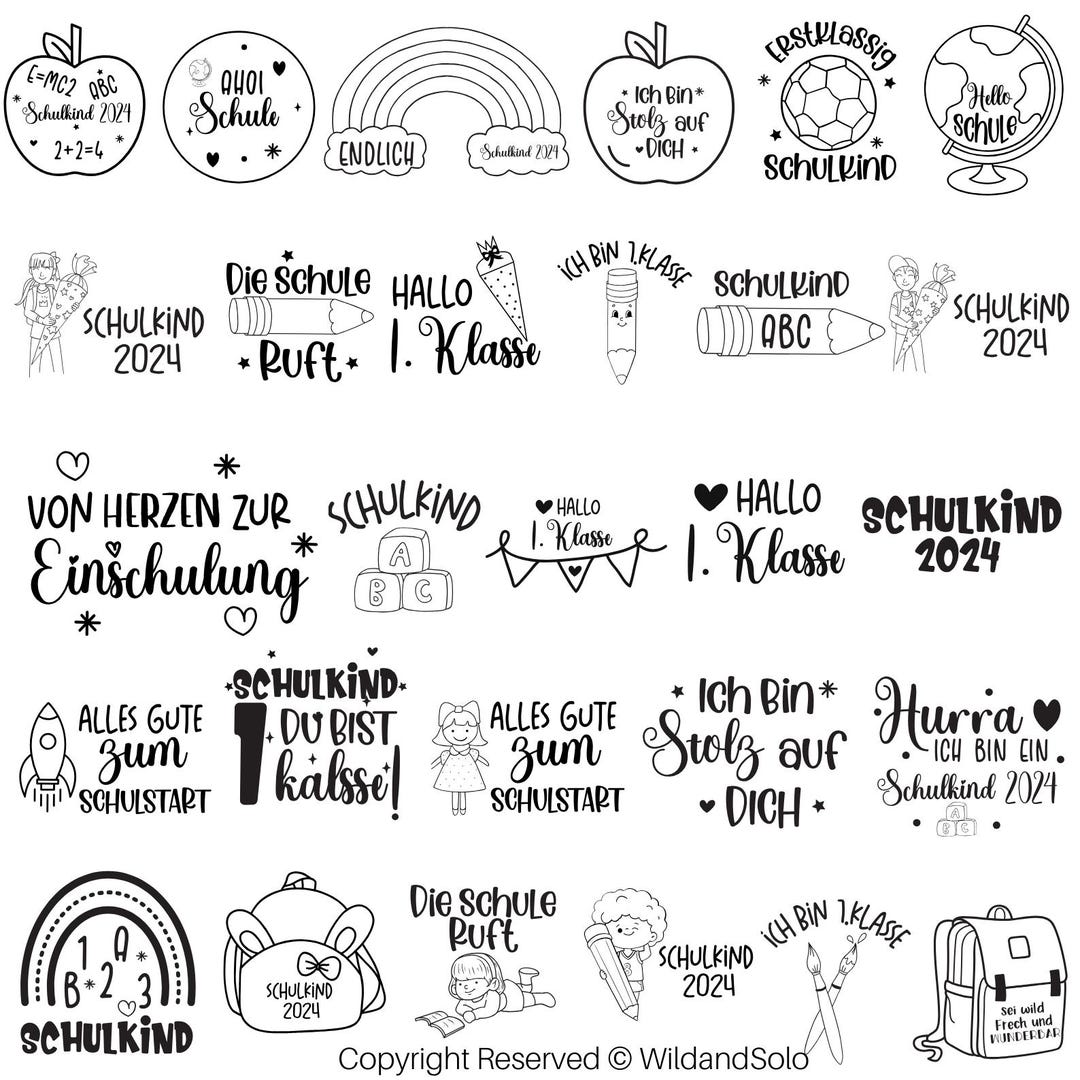 E=MC2 ABC
Schulkind 2024
2+2=4
AHOI
Schule
ENDLICH
Schulkind 2024
Ich Bin
Stolz auf
DICH
Erstklassig
Schulkind
Hello
SCHULE
SCHULKIND
2024
Die Schule
Ruft
HALLO
1. Klasse
ICH BIN 1.KLASSE
Schulkind
ABC
SCHULKIND
2024
VON HERZEN ZUR
Einschulung
SCHULKIND
A
B C
HALLO
1. Klasse
HALLO
1. Klasse
SCHULKIND
2024
ALLES GUTE
zum
SCHULSTART
SCHULKIND
1 DU BIST
kalsse!
ALLES GUTE
zum
SCHULSTART
Ich Bin
Stolz auf
DICH
Hurra
ICH BIN EIN
Schulkind 2024
A
B C
1 A
B 2 3
SCHULKIND
SCHULKIND
2024
Die Schule
Ruft
SCHULKIND
2024
ICH BIN 1.KLASSE
Sei wild
Frech und
WUNDERBAR
Copyright Reserved © WildandSolo